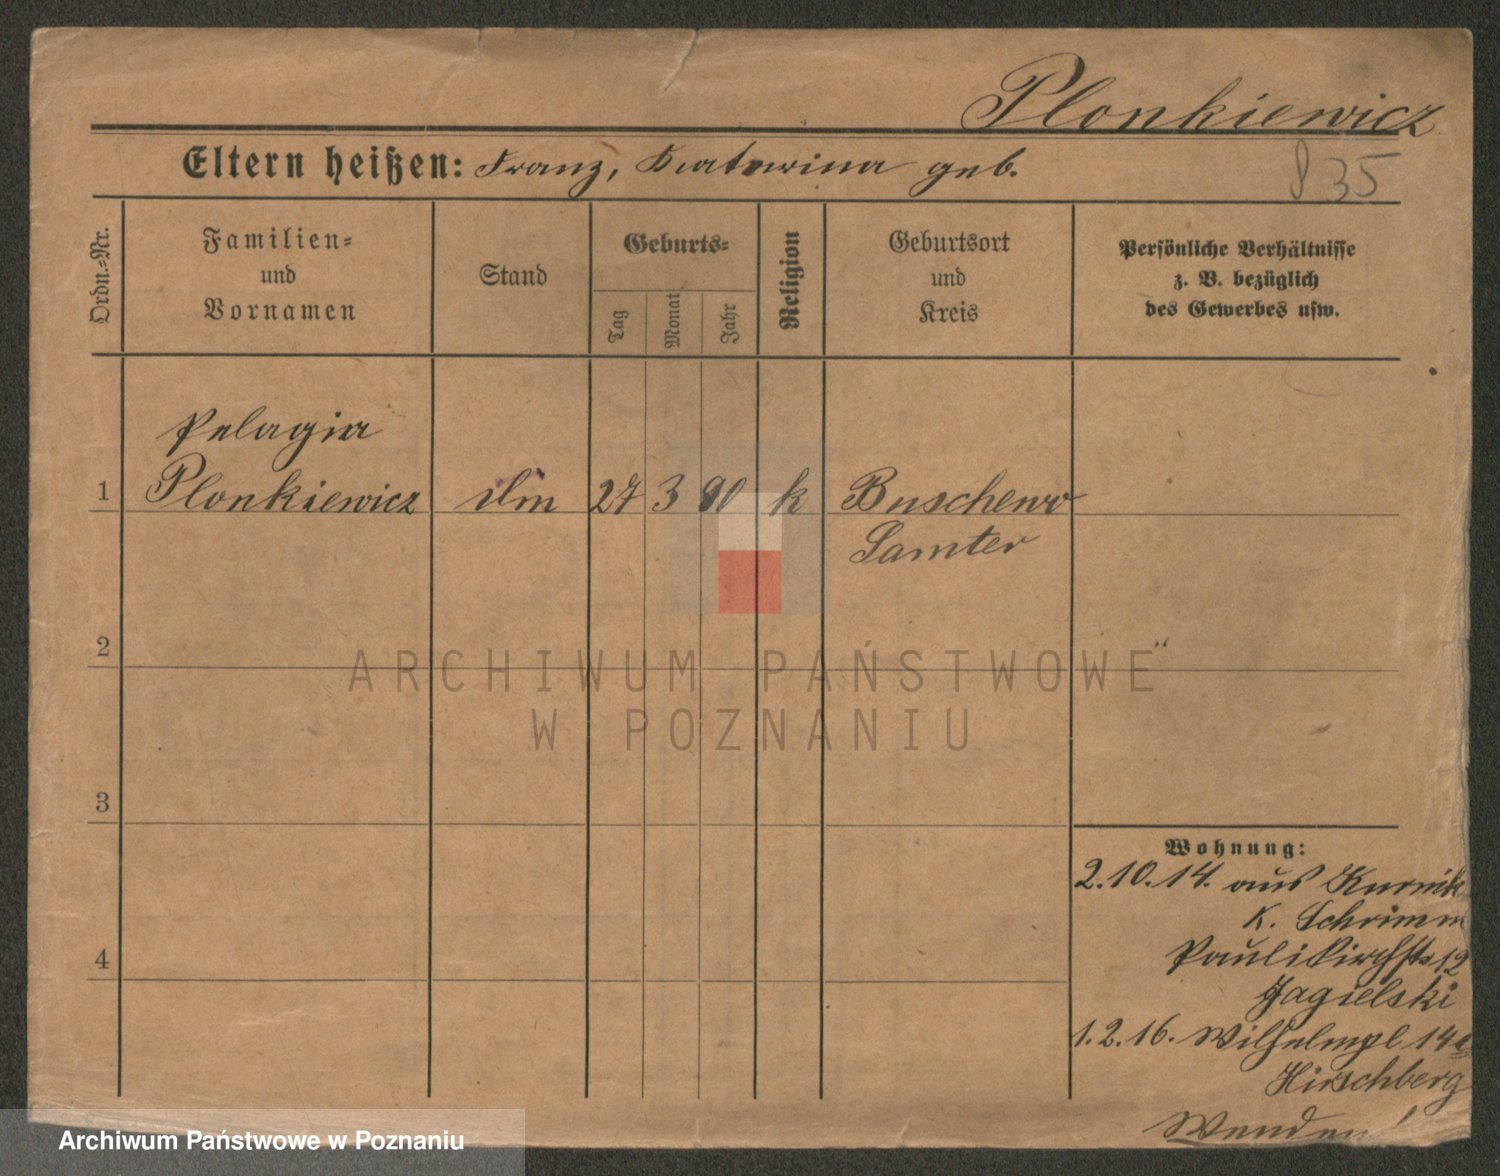 Plonkiewicz
Eltern heißen: Franz, Katarina geb.
835
Ordn.-Nr.
Familien-
und
Vornamen
Stand
Geburts-
Tag
Monat
Jahr
Religion
Geburtsort
und
Kreis
Persönliche Verhältnisse
z. B. bezüglich
des Gewerbes usw.
Pelagia
1 Plonkiewicz Dm 27 3 90 k Buschewo
Samter
2
ARCHIWUM PAŃSTWOWE
W POZNANIU
3
Wohnung:
2.10.14. aus Kurnik
K. Schrimm
4
Paulikirchstr 12
Jagielski
1.2.16. Wilhelmpl 14a
Hirschberg
Wenden!
Archiwum Państwowe w Poznaniu